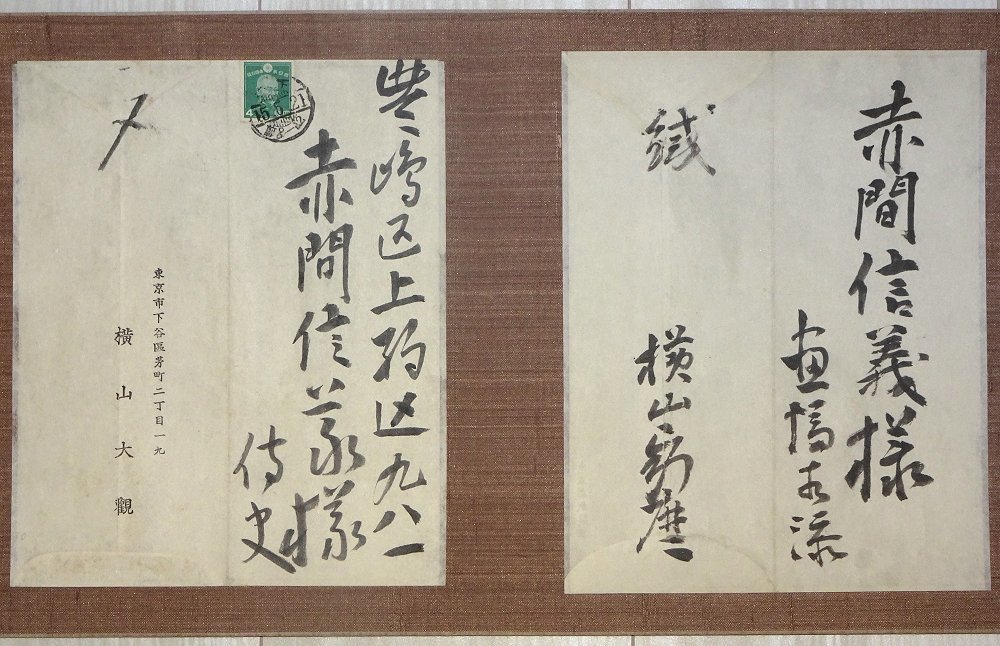 赤間信義様
画幅相添
横山秀麿
緘
豊嶋区上駒込九八一
赤間信義様
侍史
東京市下谷區茅町二丁目一九
橫山大觀
〆